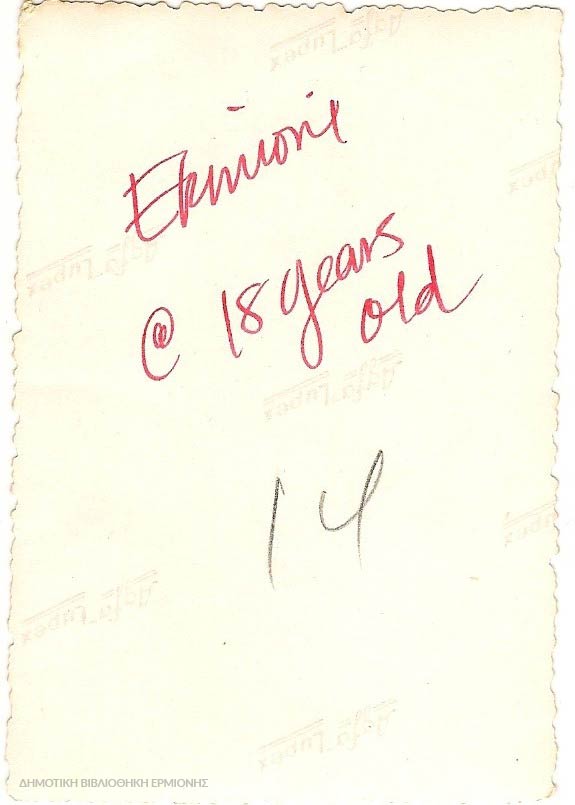 Agfa Lupex
Ermioni
Agfa Lupex
@ 18 years
old
Agfa Lupex
14
Agfa Lupex
Agfa Lupex
ΔΗΜΟΤΙΚΗ ΒΙΒΛΙΟΘΗΚΗ ΕΡΜΙΟΝΗΣ